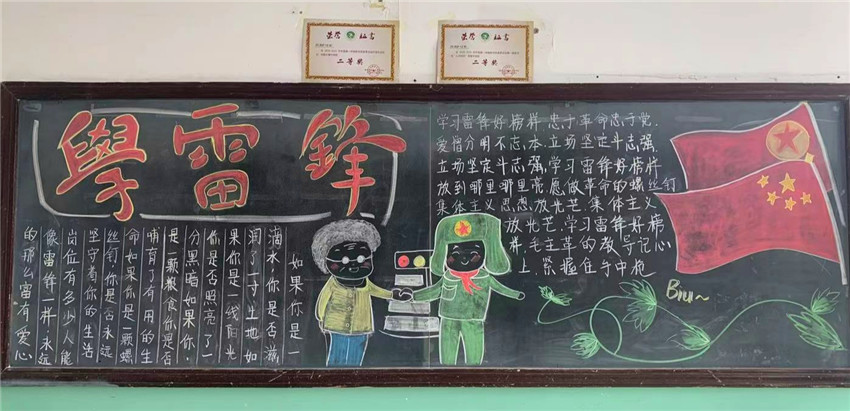 荣誉证书
二等奖
荣誉证书
二等奖
學雷鋒
如果你是一
滴水，你是否滋
润了一寸土地如
果你是一线阳光
你是否照亮了一
分黑暗如果你，
是一颗粮食你是否
哺育了有用的生
命如果你是一颗螺
丝钉你是否永远
坚守着你的生活
岗位有多少人能
像雷锋一样永远
的那么富有爱心
学习雷锋好榜样,忠于革命忠于党.
爱憎分明不忘本,立场坚定斗志强
立场坚定斗志强,学习雷锋好榜样
放到哪里哪里亮,愿做革命的螺丝钉
集体主义思想放光芒.集体主义
放光芒.学习雷锋好榜
样,毛主席的教导记心
上.紧握住手中枪
Biu~